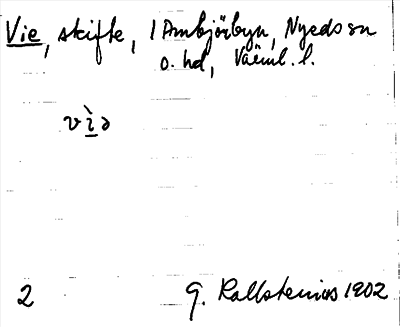 Vie, skifte, 1 Ambjörbyn, Nyeds sn
o. hd, Värml. l.
vìə
2 G. Kallstenius 1902